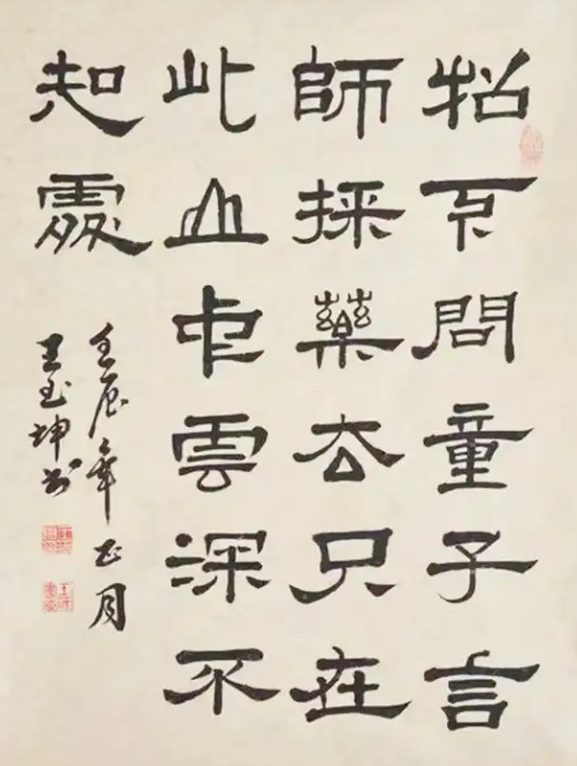 松下問童子言
師採藥去只在
此山中雲深不
知處
壬辰年正月
王玉坤书